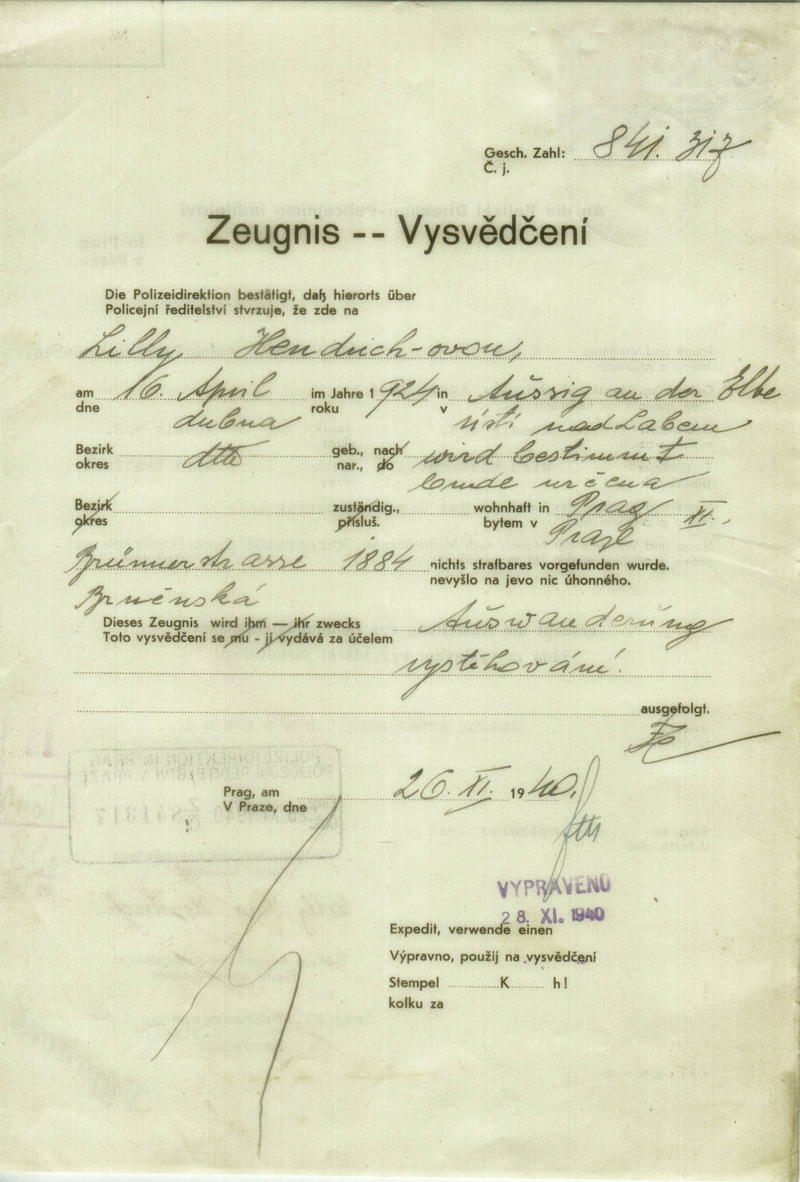 Gesch. Zahl: 841.317
Č. j.
Zeugnis -- Vysvědčení
Die Polizeidirektion bestätigt, daß hierorts über
Policejní ředitelství stvrzuje, že zde na
Lilly Hendrich-ovou,
am 16. April im Jahre 1924 in Aussig an der Elbe
dne dubna roku v Ústí nad Labem
Bezirk dtto geb., nach wird bestimmt
okres nar., do bude určena
Bezirk zuständig., wohnhaft in Prag XI.,
okres přísluš. bytem v Praze
Brünnerstrasse 1884 nichts strafbares vorgefunden wurde.
Brněnská nevyšlo na jevo nic úhonného.
Dieses Zeugnis wird ihm — ihr zwecks Auswanderung
Toto vysvědčení se mu - jí vydává za účelem
vystěhování.
ausgefolgt.
Prag, am 26. XI. 1940.
V Praze, dne
VYPRAVENO
28. XI. 1940
Expedit, verwende einen
Výpravno, použij na vysvědčení
Stempel K h!
kolku za